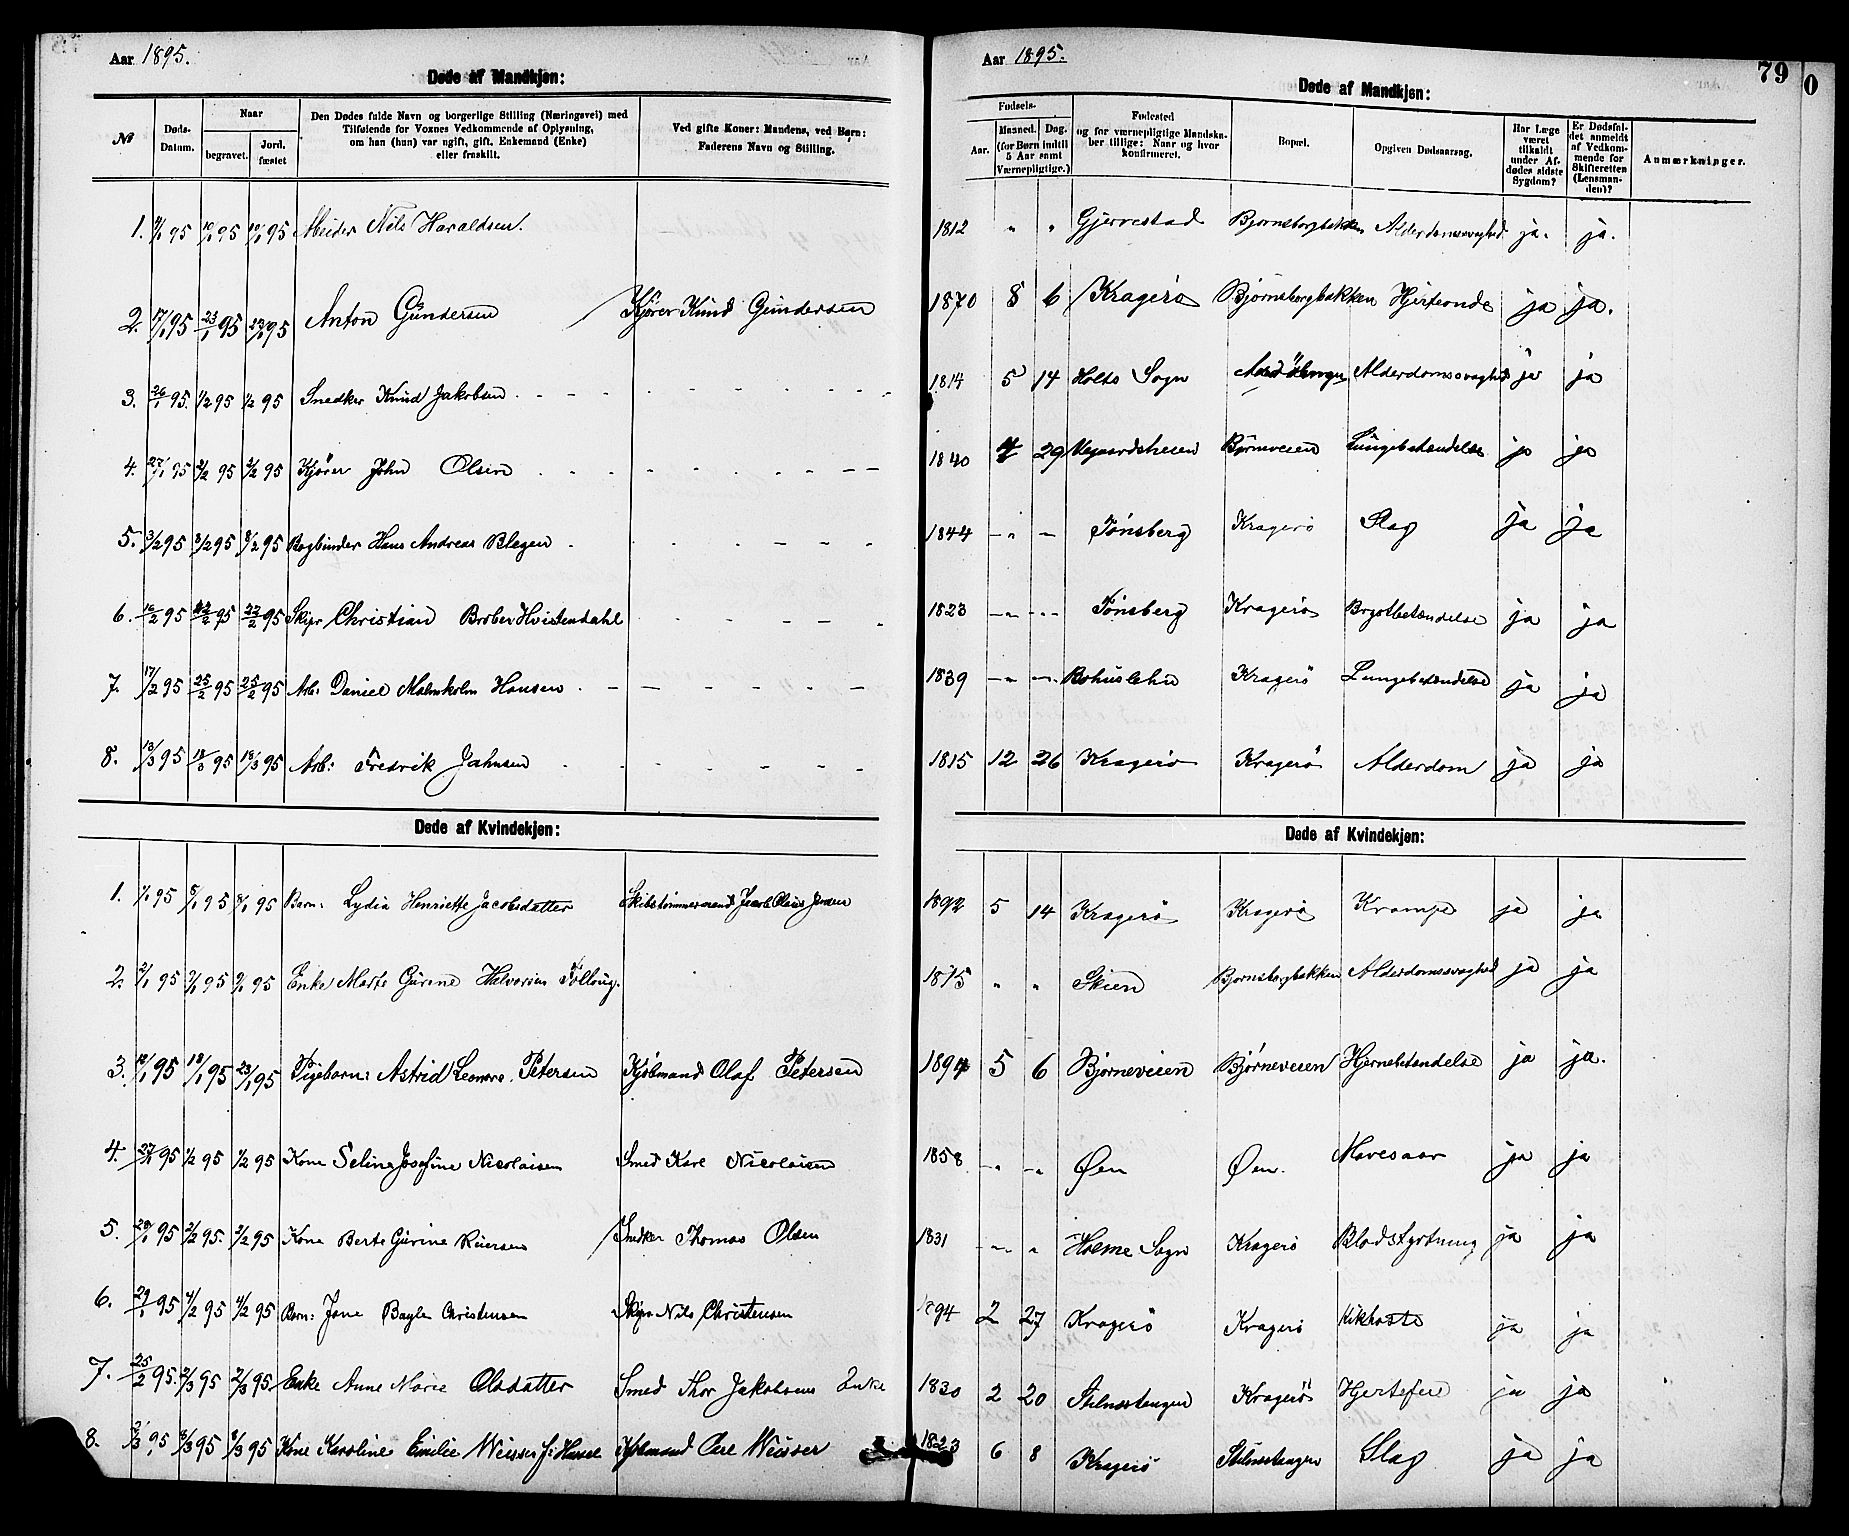 Aar 1895.
Døde af Mandkjøn:
№
Døds-Datum.
Naar
begravet.
Jord. fæstet
Den Dødes fulde Navn og borgerlige Stilling (Næringsvei) med
Tilføiende for Voxnes Vedkommende af Oplysning,
om han (hun) var ugift, gift, Enkemand (Enke)
eller fraskilt.
Ved gifte Koner: Mandens, ved Børn:
Faderens Navn og Stilling.
1. 10/1 95 Nils Haraldsen.
2. 17/1 95 23/1 95 23/1 95 Anton Gundersen Kjører Knud Gundersen
3. 26/1 95. 1/2 95 1/2 95 Snedker Knud Jakobsen
4. 27/1 95 2/2 95 2/2 95 Kjører John Olsen
5. 3/2 95 8/2 95 8/2 95 Bogbinder Hans Andreas Blegen
6. 16/2 95 22/2 95 22/2 95 Skipr Christian Hvistendahl
7. 17/2 95 25/2 95 25/2 95 Arb: Daniel Malmholm Hansen
8. 13/3 95 18/3 95 18/3 95 Arb: Fredrik Jahnsen
Døde af Kvindekjøn:
1. 1/1 95 5/1 95 8/1 95 Barn: Lydia Henriette Jacobsdatter Skibstømmermand Jacob Olaus Jensen
2. 2/1 95 9/1 95 9/1 95 Enke Marte Gurine Halvorsen
3. 12/1 95 18/1 95 23/1 95 Pigebarn: Astrid Leonore. Petersen Kjøbmand Olaf Petersen
4. 27/1 95 1/2 95 1/2 95 Kone Selina Josefine Nicolaisen Smed Karl Nicolaisen
5. 28/1 95 2/2 95. 2/2 95 Kone Berte Gurine Snedker Thomas Olsen
6. 29/1 95 4/2 95 4/2 95 Barn: Jane Christensen Skipr Nils Christensen
7. 25/2 95. 2/3 95 2/3 95. Enke Anne Marie Olsdatter Smed Thor Jakobsens Enke
8. 2/3 95 8/3 95 8/3 95 Kone Karoline Emilie Weisser f: Kjøbmand Carl Weisser
Aar 1895.
79
0
Døde af Mandkjøn:
Fødsels-
Aar.
Maaned. Dag.
(for Børn indtil
5 Aar samt
Værnepligtige.)
Fødested
og for værnepligtige Mandska-
ber tillige: Naar og hvor
konfirmeret.
Bopæl.
Opgiven Dødsaarsag.
Har Læge
været
tilkaldt
under Af-
dødes sidste
Sygdom?
Er Dødsfal-
det anmeldt
af Vedkom-
mende for
Skifteretten
(Lensman-
den)?
Anmærkninger.
1812 " " Gjerrestad Bjørnsborgbakken Alderdomssvaghed ja. ja.
1870 8 6 Kragerø Bjørnsborgbakken Hjerteonde ja ja.
1814 5 14 Holts Sogn Alderdomssvaghed ja ja
1840 4 29 Vegaardsheien Bjørneveien Lungebetændelse ja ja
1844 - " - Tønsberg Kragerø Slag ja ja
1823 - " - Tønsberg Kragerø Brystbetændelse ja ja
1839 - " - Bohuslehn Kragerø Lungebetændelse ja ja
1815 12 26 Kragerø Kragerø Alderdom ja ja
Døde af Kvindekjøn:
1892 5 14 Kragerø Kragerø Krampe ja ja
1815 " " Skien Bjørnsborgbakken Alderdomssvaghed ja ja
1894 5 6 Bjørneveien Bjørneveien Hjernebetændelse ja ja.
1858 - " - Øen Øen. Mavesaar ja ja
1831 - " - " Holme Sogn Kragerø Blodstyrtning ja ja
1894 2 27 Kragerø Kragerø Kikhoste ja ja
1830 2 20 Stilnestangen Kragerø Hjertefeil ja ja
1823 6 8 Kragerø Stilnestangen Slag ja ja